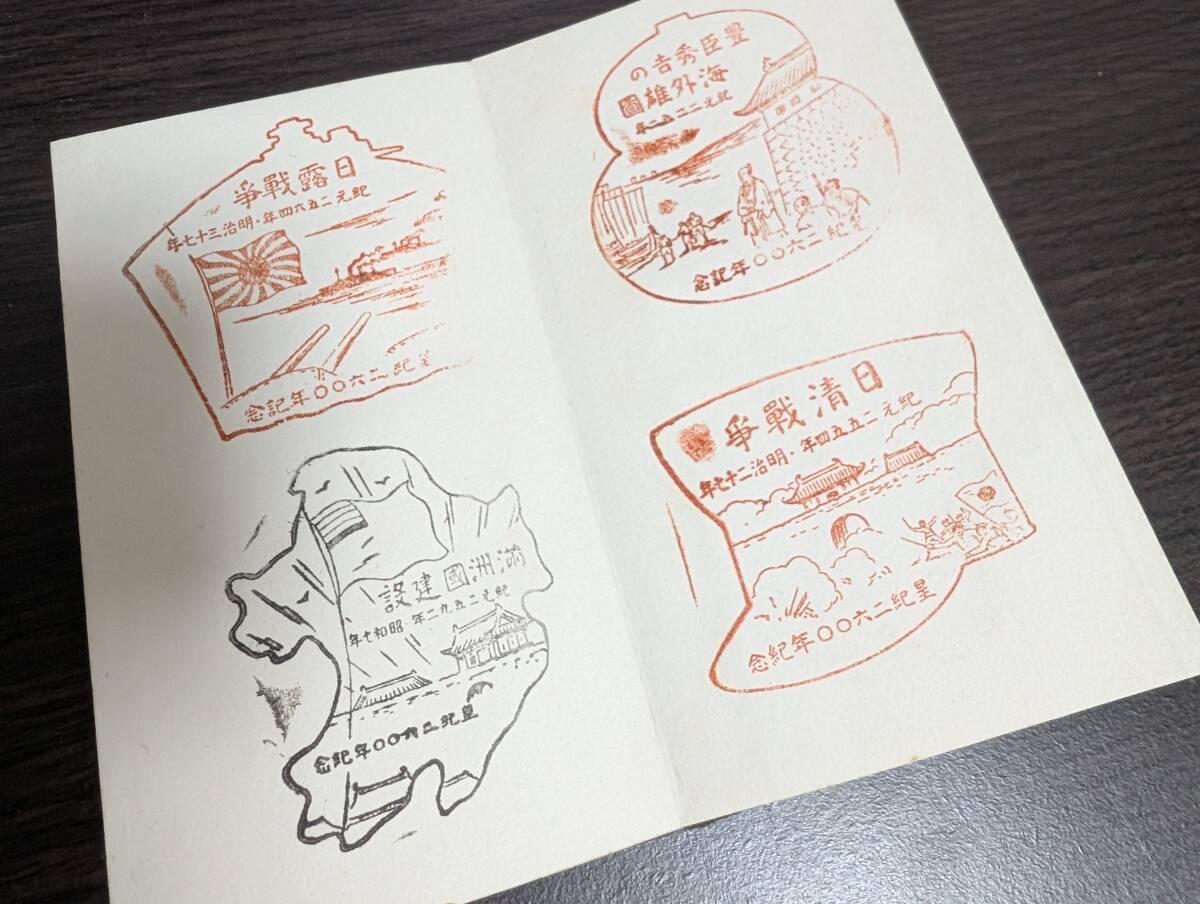 豐臣秀吉の
海外雄圖
紀元二二五二年
皇紀二六〇〇年記念
日清戰爭
紀元二五五四年・明治二十七年
皇紀二六〇〇年紀念
日露戰爭
紀元二五六四年・明治三十七年
皇紀二六〇〇年記念
滿洲國建設
紀元二五九二年・昭和七年
皇紀二六〇〇年記念